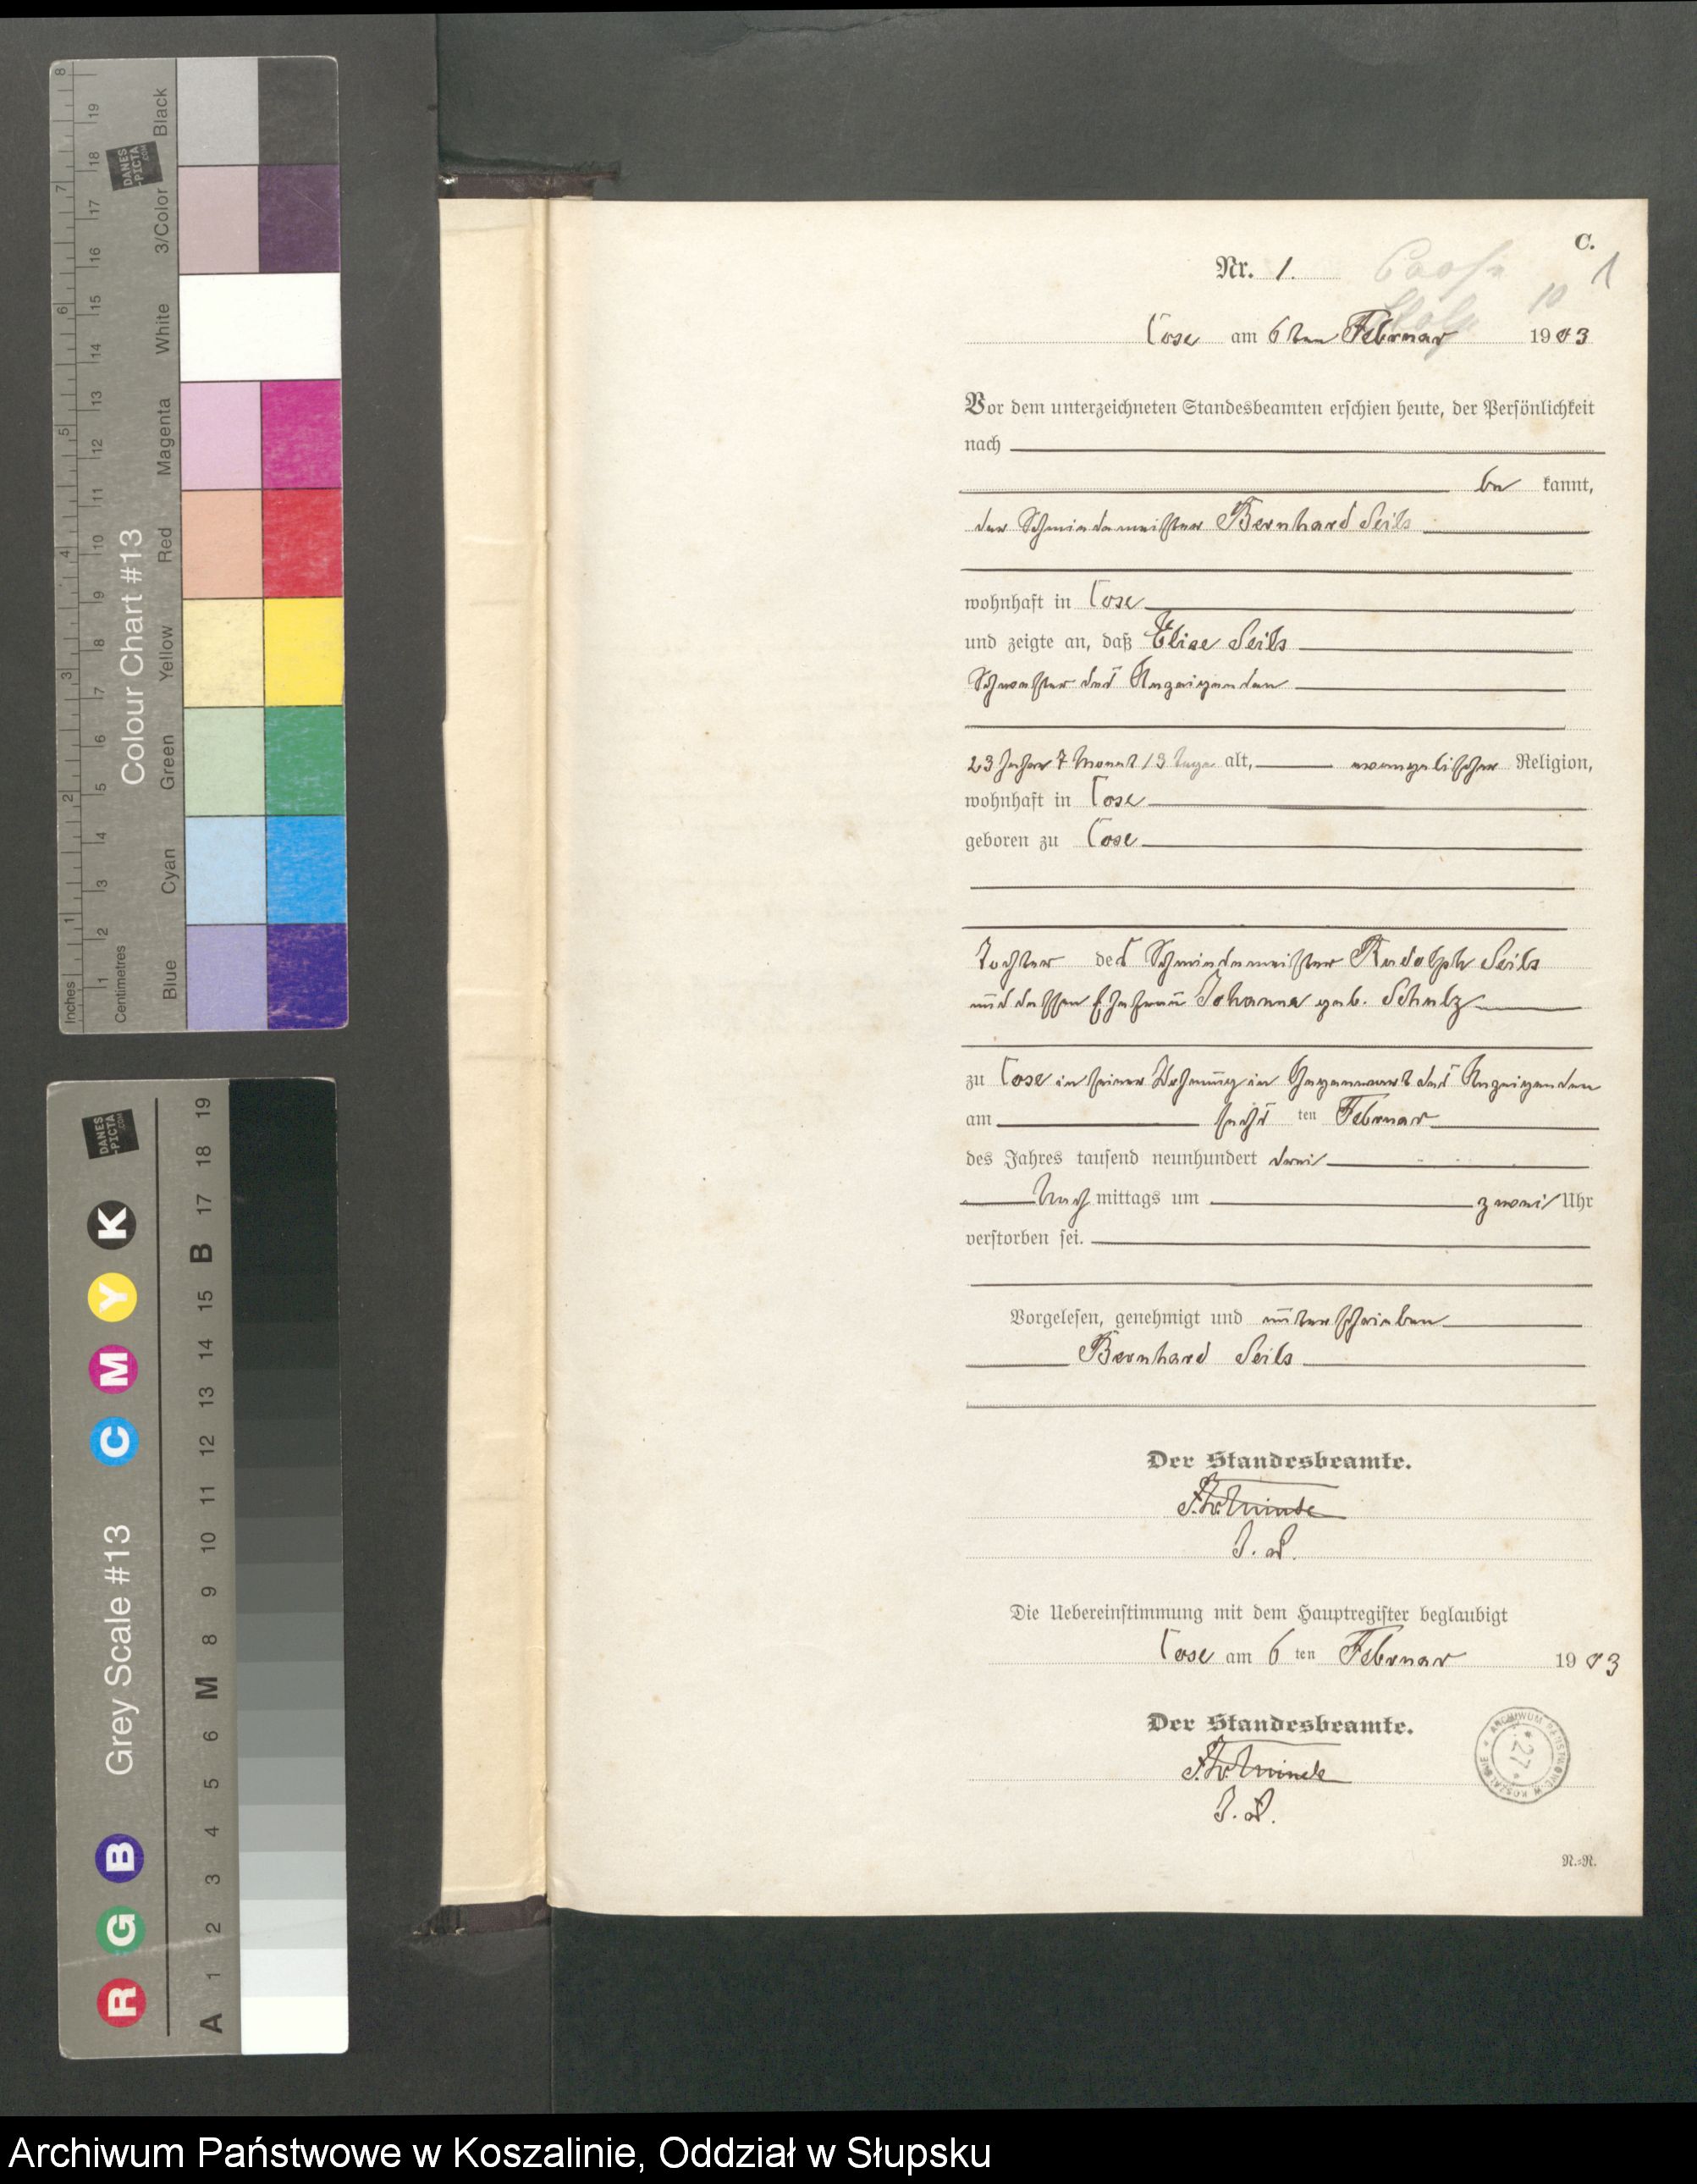 C.
Nr. 1.
1
10
Cose am 6ten Februar 1903
Vor dem unterzeichneten Standesbeamten erschien heute, der Persönlichkeit
nach
be kannt,
der Schmiedemeister Bernhard Seils
wohnhaft in Cose
und zeigte an, daß Elise Seils
Schwester des Anzeigenden
23 Jahre 7 Monat 13 Tage alt, evangelischer Religion,
wohnhaft in Cose
geboren zu Cose
Tochter des Schmiedemeister Rudolph Seils
und dessen Ehefrau Johanna geb. Schulz
zu Cose in seiner Wohnung in Gegenwart des Anzeigenden
am sechs ten Februar
des Jahres tausend neunhundert drei
Nach mittags um zwei Uhr
verstorben sei.
Vorgelesen, genehmigt und unterschrieben
Bernhard Seils
Der Standesbeamte.
J. V.
Die Uebereinstimmung mit dem Hauptregister beglaubigt
Cose am 6 ten Februar 1903
Der Standesbeamte.
J. V.
ARCHIWUM PAŃSTWOWE W KOSZALINIE
* 27 *
N.=N.
Colour Chart #13
DANES
-PICTA
.COM
Black
3/Color
White
Magenta
Red
Yellow
Green
Cyan
Blue
Inches
1 2 3 4 5 6 7 8
Centimetres
1 2 3 4 5 6 7 8 9 10 11 12 13 14 15 16 17 18 19
Grey Scale #13
DANES
-PICTA
.COM
R G B C M Y K
A 1 2 3 4 5 6 M 8 9 10 11 12 13 14 15 B 17 18 19
Archiwum Państwowe w Koszalinie, Oddział w Słupsku